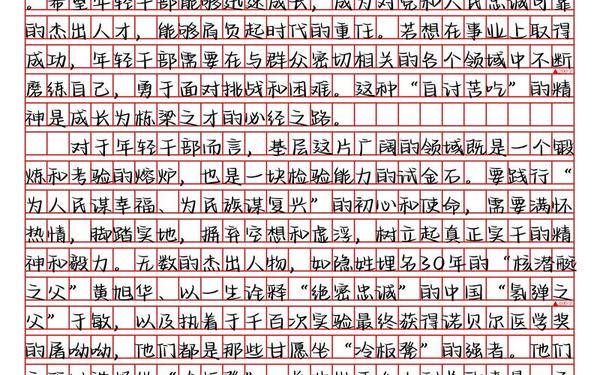 。希望年轻干部能够迅速成长，成为对党和人民忠诚可靠
的杰出人才，能够肩负起时代的重任。若想在事业上取得
成功，年轻干部需要在与群众密切相关的各个领域中不断
磨练自己，勇于面对挑战和困难。这种“自讨苦吃”的精
神是成长为栋梁之才的必经之路。
对于年轻干部而言，基层这片广阔的领域既是一个锻
炼和考验的熔炉，也是一块检验能力的试金石。要践行“
为人民谋幸福、为民族谋复兴”的初心和使命，需要满怀
热情，脚踏实地，摒弃空想和虚浮，树立起真正实干的精
神和毅力。无数的杰出人物，如隐姓埋名30年的“核潜艇
之父”黄旭华、以一生诠释“绝密忠诚”的中国“氢弹之
父”于敏，以及执着于千百次实验最终获得诺贝尔医学奖
的屠呦呦，他们都是那些甘愿坐“冷板凳”的强者。他们